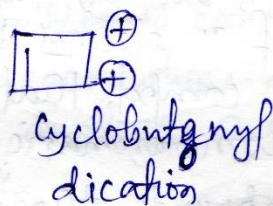 ⊕
⊕
Cyclobutanyl
dication